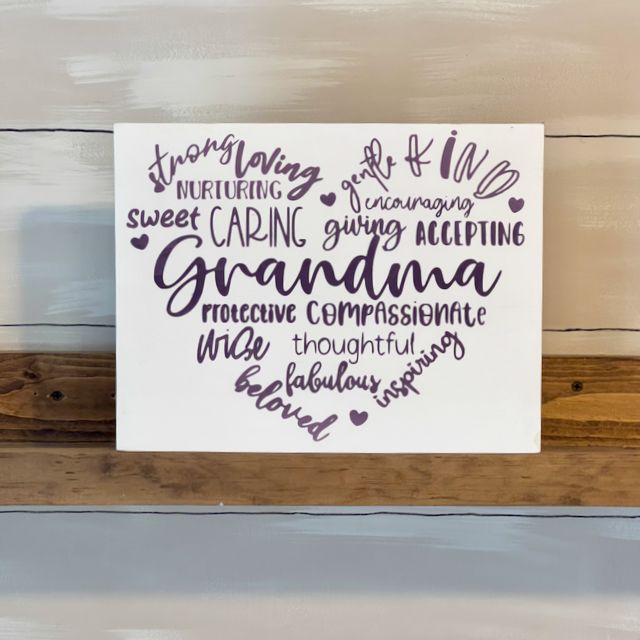 strong loving gentle & KIND
NURTURING encouraging
sweet CARING giving ACCEPTING
Grandma
Protective COMPASSIONATE
wise thoughtful inspiring
beloved fabulous